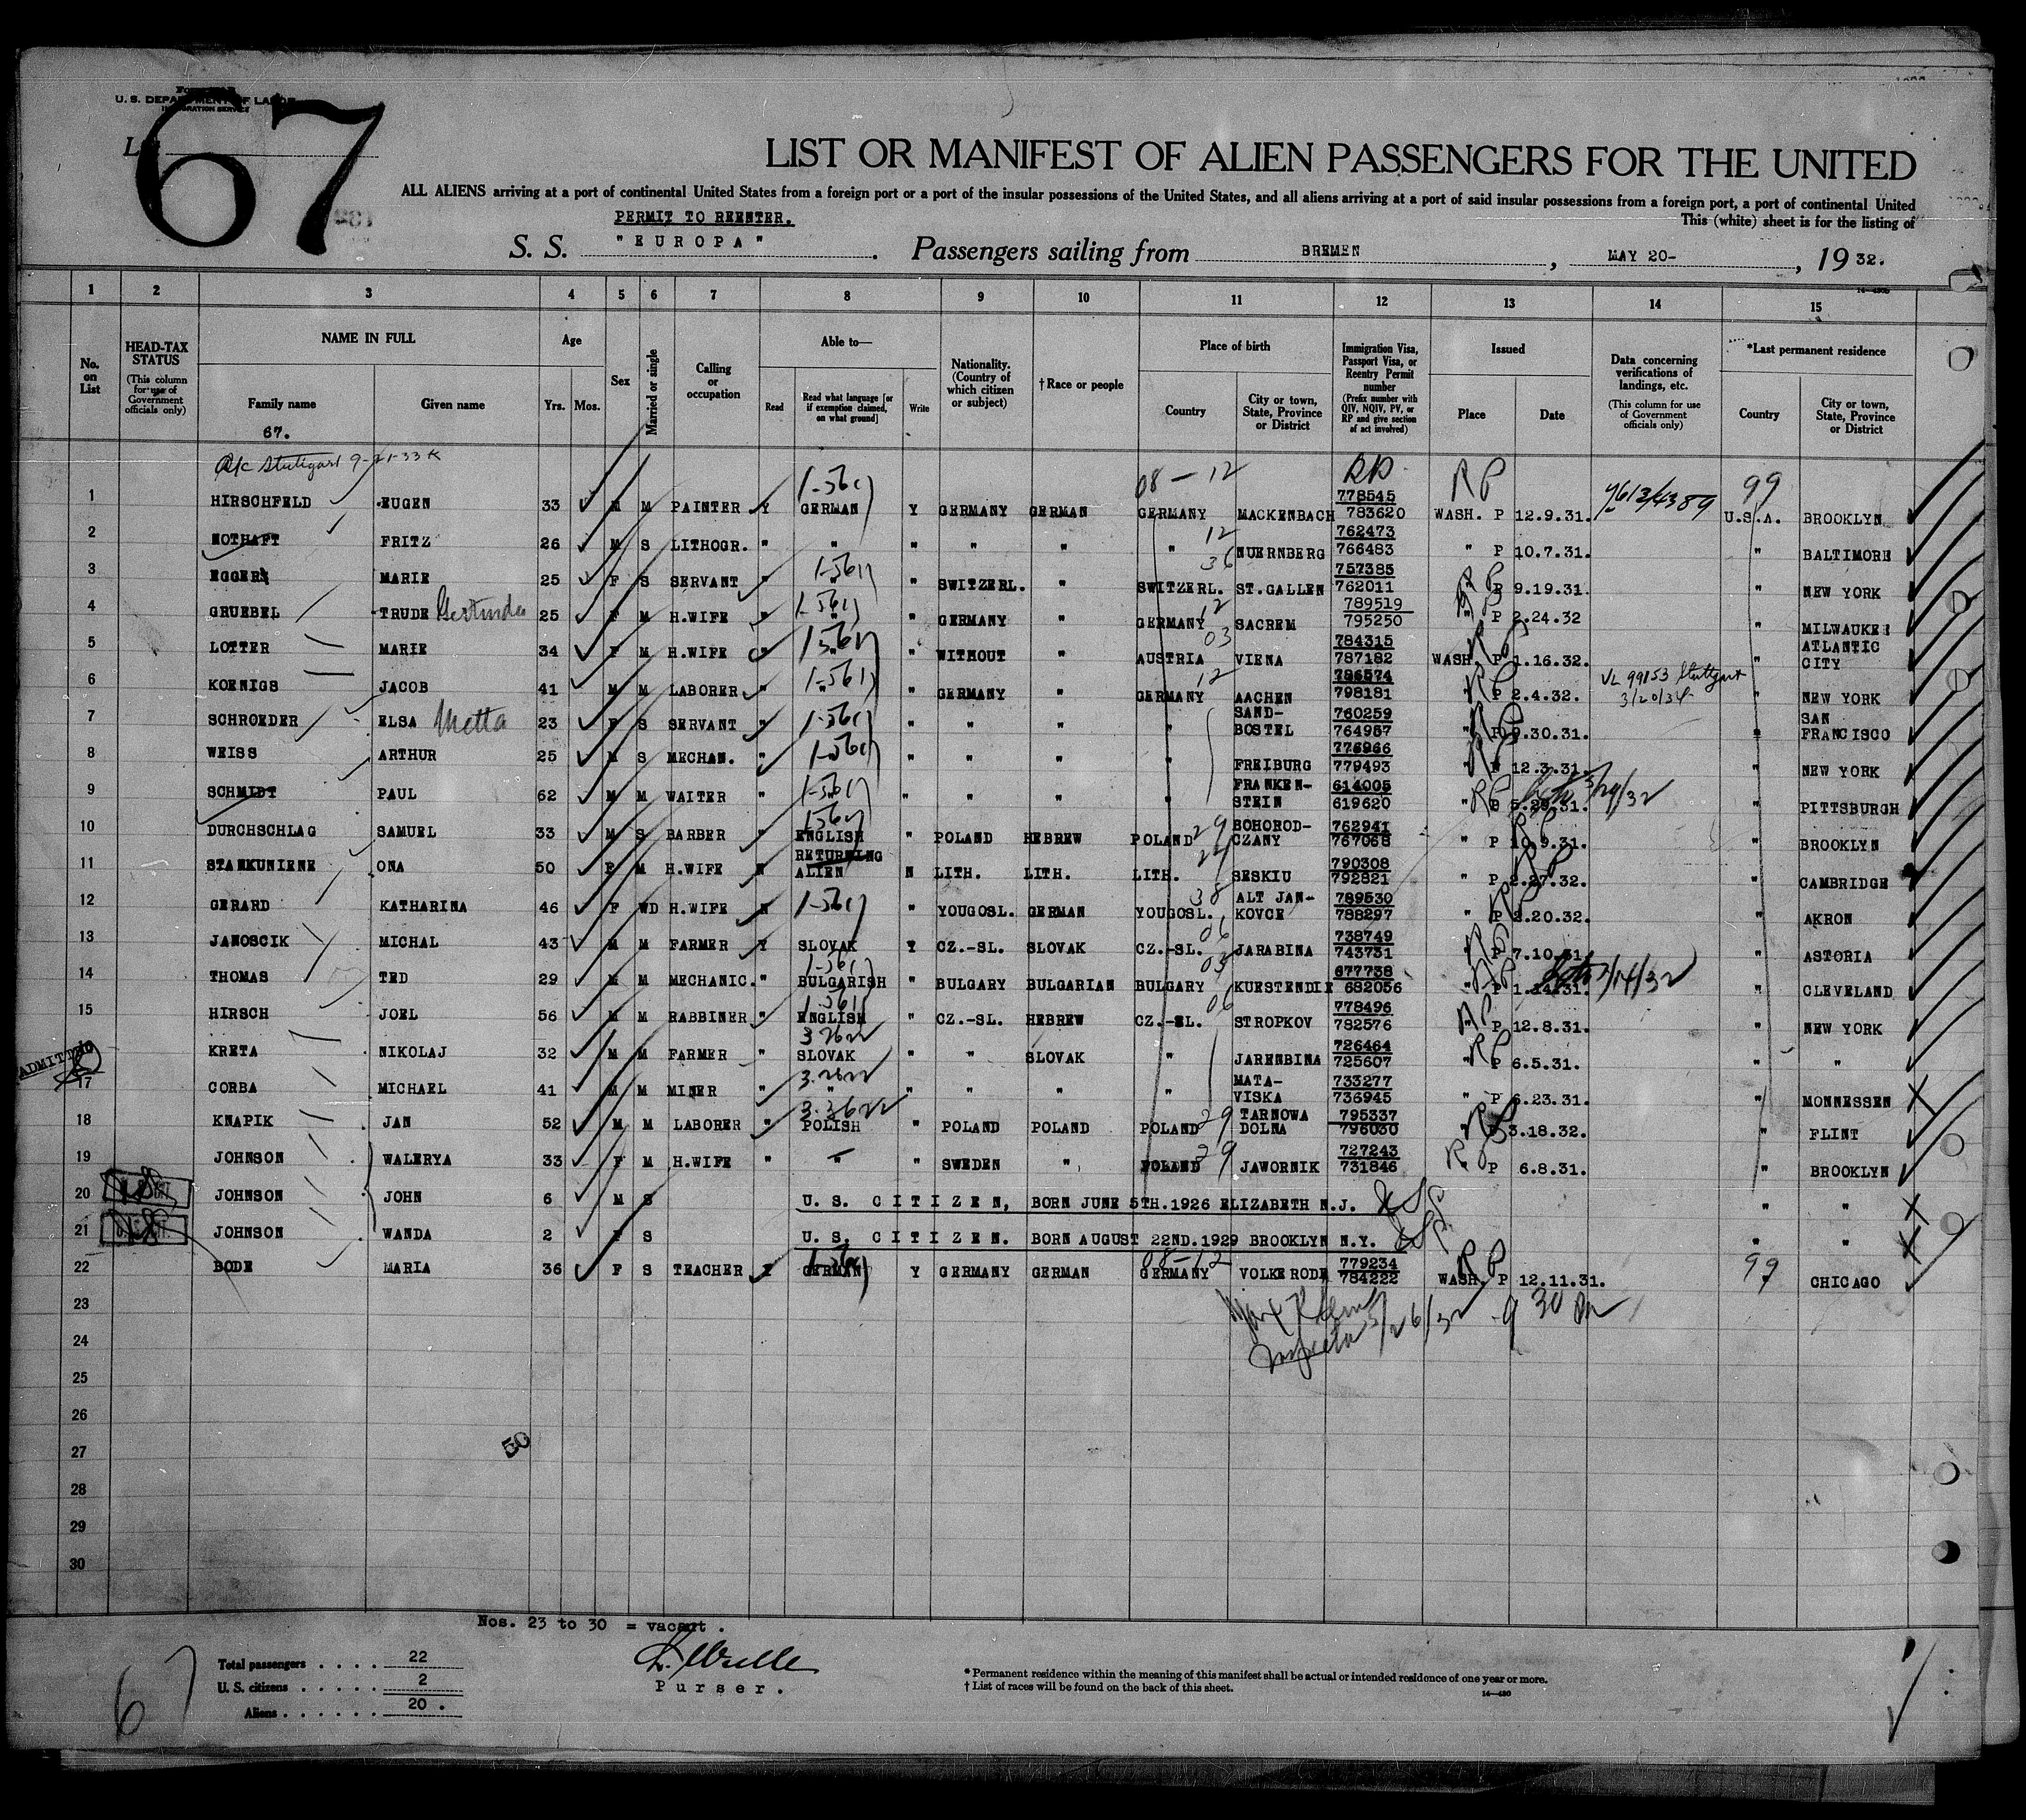 U. S. DEPARTMENT OF LABOR
IMMIGRATION SERVICE
67
LIST OR MANIFEST OF ALIEN PASSENGERS FOR THE UNITED
ALL ALIENS arriving at a port of continental United States from a foreign port or a port of the insular possessions of the United States, and all aliens arriving at a port of said insular possessions from a foreign port, a port of continental United
PERMIT TO REENTER.
This (white) sheet is for the listing of
S. S. "EUROPA". Passengers sailing from BREMEN, MAY 20-, 1932.
1 2 3 4 5 6 7 8 9 10 11 12 13 14 15
No. on List
HEAD-TAX STATUS (This column for use of Government officials only)
NAME IN FULL Family name Given name
67.
Age Yrs. Mos.
Sex
Married or single
Calling or occupation
Able to— Read Read what language [or if exemption claimed, on what ground] Write
Nationality. (Country of which citizen or subject)
† Race or people
Place of birth Country City or town, State, Province or District
Immigration Visa, Passport Visa, or Reentry Permit number (Prefix number with QIV, NQIV, PV, or RP and give section of act involved)
Issued Place Date
Data concerning verifications of landings, etc. (This column for use of Government officials only)
*Last permanent residence Country City or town, State, Province or District
Stuttgart 9-21-33
08-12 RP RP 99
1 HIRSCHFELD EUGEN 33 M M PAINTER Y GERMAN Y GERMANY GERMAN GERMANY MACKENBACH 778545 783620 WASH. P 12.9.31. U.S.A. BROOKLYN
2 NOTHAFT FRITZ 26 M S LITHOGR. " " " " " " NUERNBERG 762473 766483 " P 10.7.31. " BALTIMORE
3 EGGER MARIE 25 F S SERVANT " " " SWITZERL. " SWITZERL. ST.GALLEN 757385 762011 " P 9.19.31. " NEW YORK
4 GRUEBEL TRUDE 25 F M H.WIFE " " " GERMANY " GERMANY SACREM 789519 795250 " P 2.24.32 " MILWAUKEE
5 LOTTER MARIE 34 F M H.WIFE " " " WITHOUT " AUSTRIA VIENA 784315 787182 WASH. P 1.16.32. " ATLANTIC CITY
6 KOENIGS JACOB 41 M M LABORER " " " GERMANY " GERMANY AACHEN 786574 798181 " P 2.4.32. VL 99153 Stuttgart 3/20/34 " NEW YORK
7 SCHROEDER ELSA Metta 23 F S SERVANT " " " " " SAND-BOSTEL 760259 764957 " P 9.30.31. " SAN FRANCISCO
8 WEISS ARTHUR 25 M S MECHAN. " " " " " FREIBURG 775966 779493 " P 12.3.31. " NEW YORK
9 SCHMIDT PAUL 62 M M WAITER " " " " " FRANKEN-STEIN 614005 619620 " P 5.29.31. " PITTSBURGH
10 DURCHSCHLAG SAMUEL 33 M S BARBER " ENGLISH " POLAND HEBREW POLAND BOHOROD-CZANY 762941 767068 " P 10.9.31. " BROOKLYN
11 STANKUNIENE ONA 50 F M H.WIFE N RETURNING ALIEN N LITH. LITH. LITH. SESKIU 790308 792821 " P 2.27.32. " CAMBRIDGE
12 GERARD KATHARINA 46 F WD H.WIFE N " YOUGOSL. GERMAN YOUGOSL. ALT JAN-KOVCE 789530 788297 " P 2.20.32. " AKRON
13 JANOSCIK MICHAL 43 M M FARMER Y SLOVAK Y CZ.-SL. SLOVAK CZ.-SL. JARABINA 738749 743731 " P 7.10.31. " ASTORIA
14 THOMAS TED 29 M M MECHANIC. " BULGARISH " BULGARY BULGARIAN BULGARY KUESTENDIE 677738 682056 " P 1.14.31. " CLEVELAND
15 HIRSCH JOEL 56 M M RABBINER " ENGLISH " CZ.-SL. HEBREW CZ.-SL. STROPKOV 778496 782576 " P 12.8.31. " NEW YORK
ADMITTED
KRETA NIKOLAJ 32 M M FARMER " SLOVAK " " SLOVAK " JARENBINA 726464 725607 " P 6.5.31. " "
17 CORBA MICHAEL 41 M M MINER " " " " " " MATA-VISKA 733277 736945 " P 6.23.31. " MONNESSEN
18 KNAPIK JAN 52 M M LABORER " POLISH " POLAND POLAND POLAND TARNOWA DOLNA 795337 796030 " P 3.18.32. " FLINT
19 JOHNSON WALERYA 33 F M H.WIFE " " " SWEDEN " POLAND JAWORNIK 727243 731846 P 6.8.31. " BROOKLYN
20 JOHNSON JOHN 6 M S U. S. CITIZEN, BORN JUNE 5TH.1926 ELIZABETH N.J. " "
21 JOHNSON WANDA 2 F S U. S. CITIZEN. BORN AUGUST 22ND.1929 BROOKLYN N.Y. " "
22 BODE MARIA 36 F S TEACHER Y GERMAN Y GERMANY GERMAN GERMANY VOLKERODE 779234 784222 WASH. P 12.11.31. 99 CHICAGO
23
24 Inspector 5/26/32 9 30
25
26
27 50
28
29
30
Nos. 23 to 30 = vacant.
Total passengers . . . . 22
U. S. citizens . . . . . 2
Aliens . . . . . . 20.
Purser.
* Permanent residence within the meaning of this manifest shall be actual or intended residence of one year or more.
† List of races will be found on the back of this sheet.
14—430
67